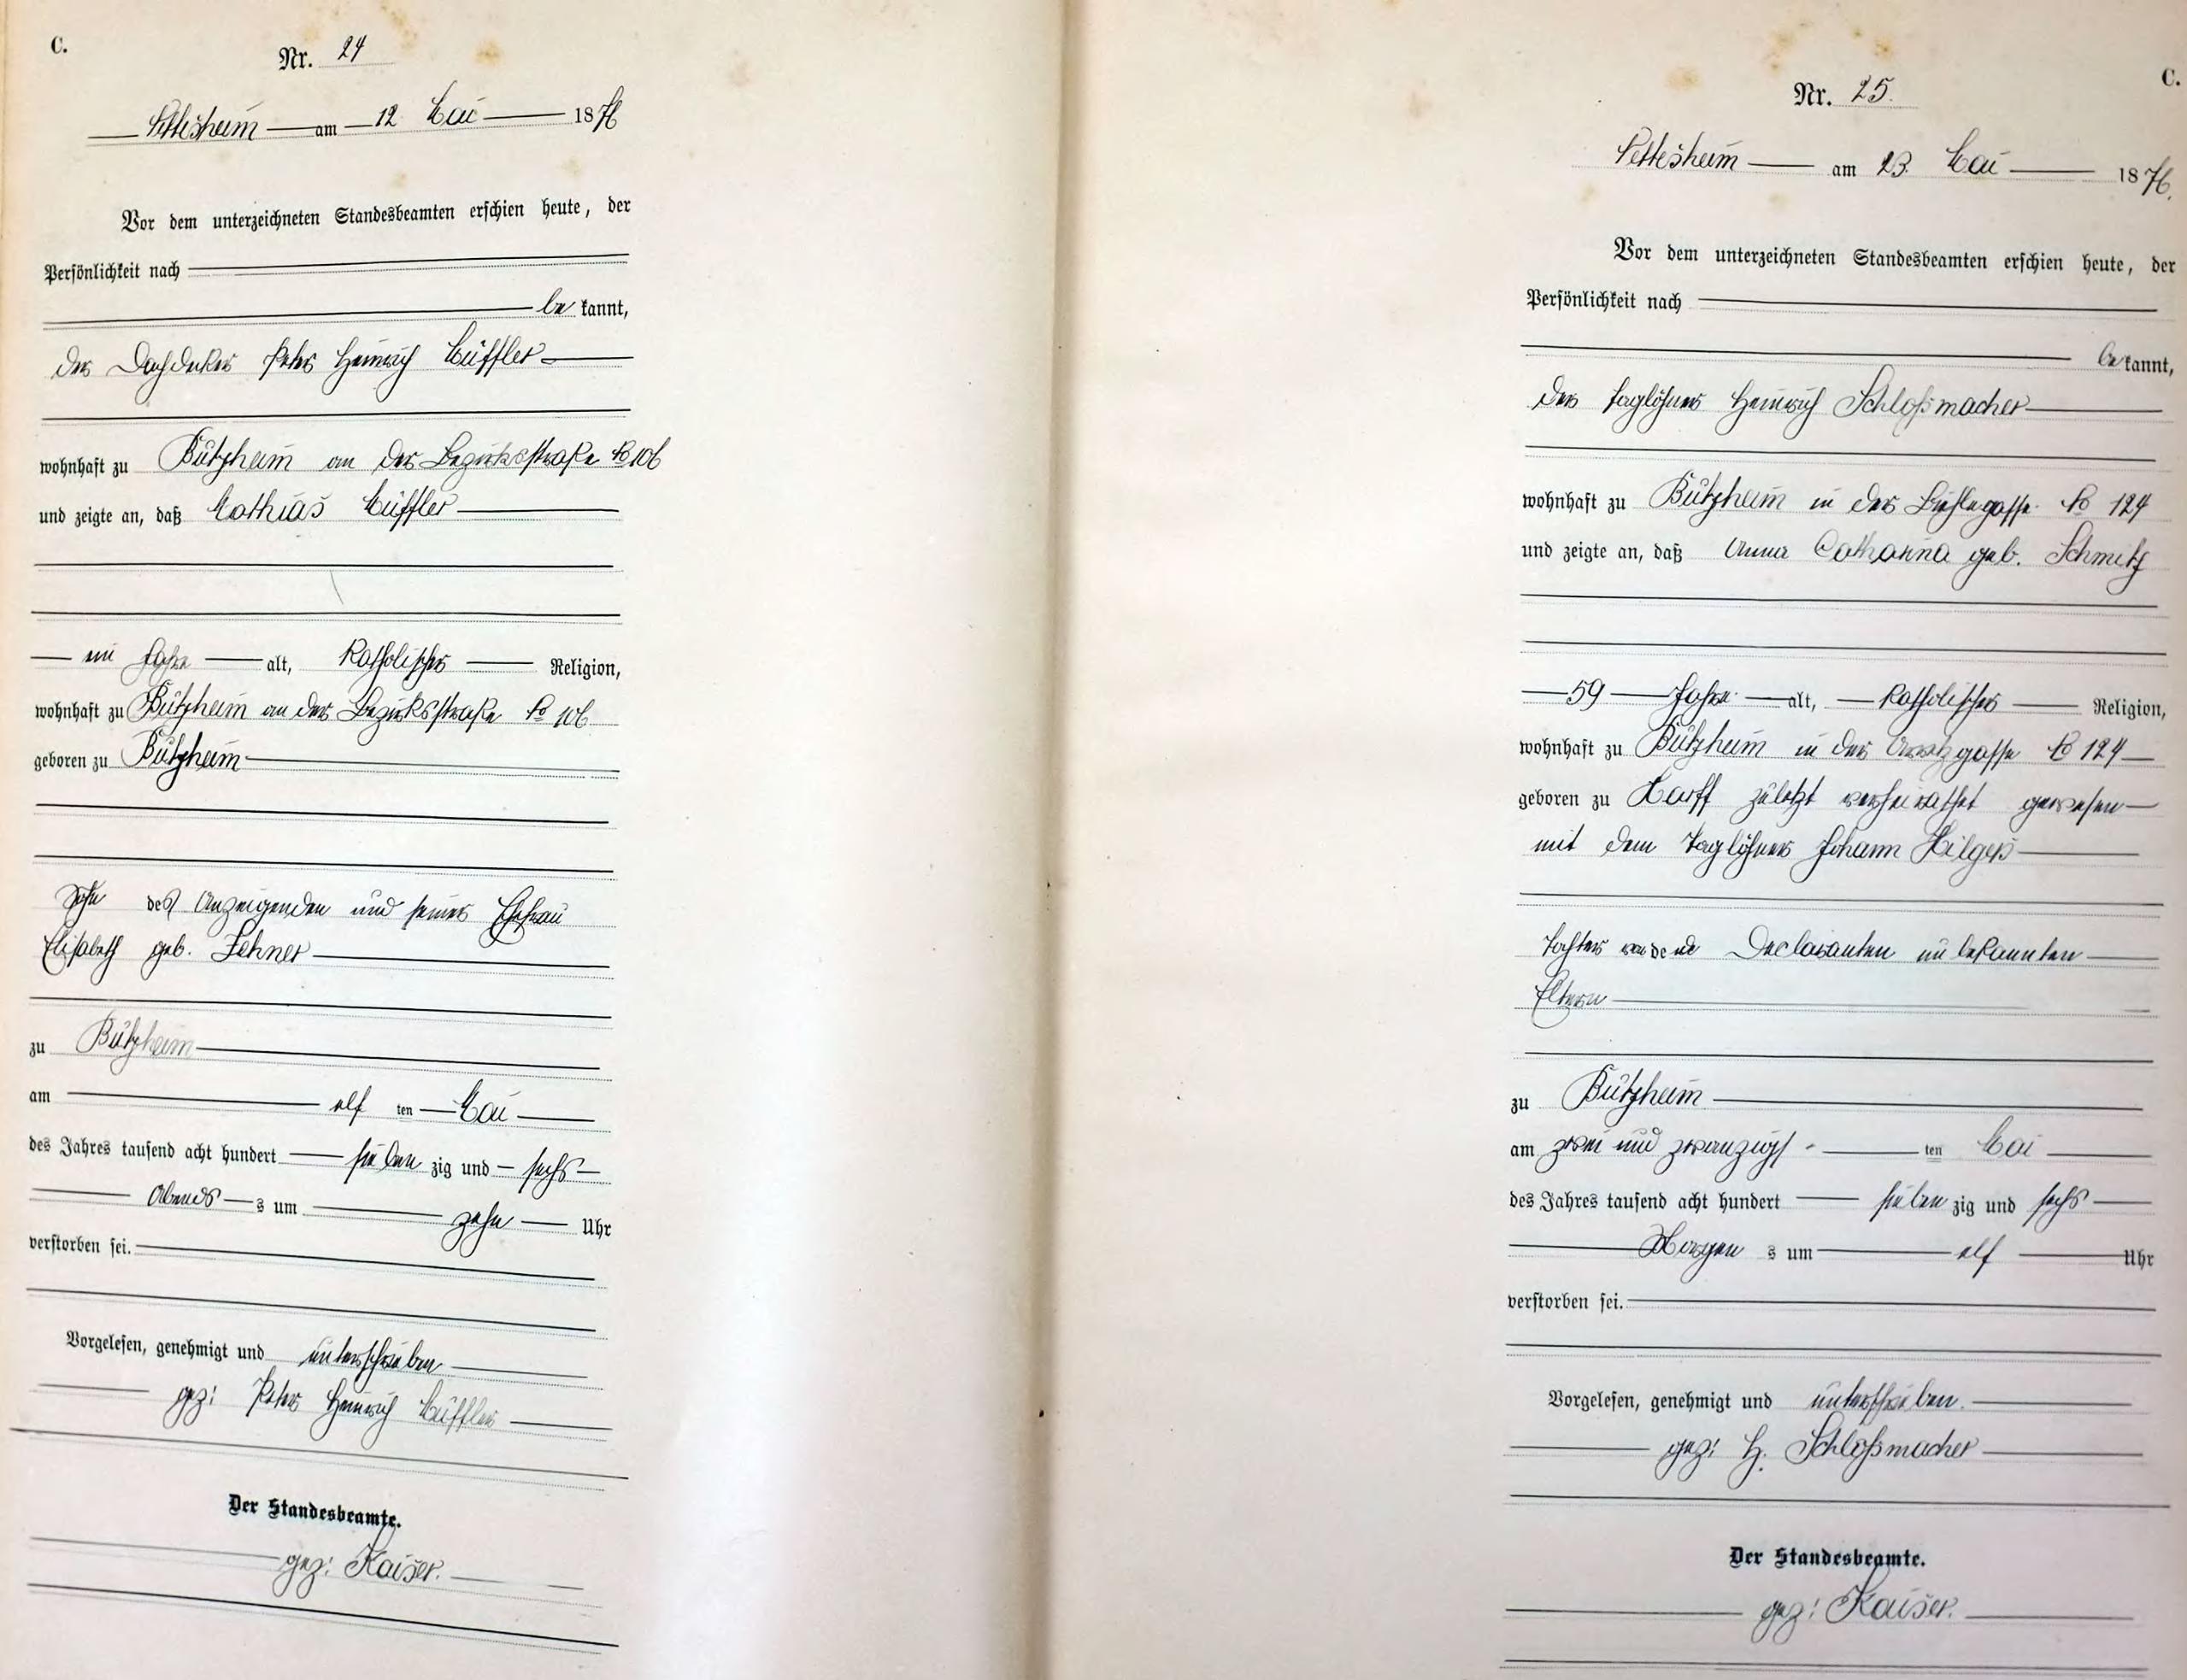 C.
Nr. 24
am 12. Mai 1876
Vor dem unterzeichneten Standesbeamten erschien heute, der
Persönlichkeit nach
be kannt,
der Dachdecker Peter Heinrich Müffler
wohnhaft zu Bützheim an der Bezirksstraße No 106
und zeigte an, daß Mathias Müffler
ein Jahr alt, katholischer Religion,
wohnhaft zu Bützheim an der Bezirksstraße No 106
geboren zu Bützheim
Sohn des Anzeigenden und seiner Ehefrau
Elisabeth geb. Lehner
zu Bützheim
am elf ten Mai
des Jahres tausend acht hundert sieben zig und sechs
Abends s um zehn Uhr
verstorben sei.
Vorgelesen, genehmigt und unterschrieben
gez: Peter Heinrich Müffler
Der Standesbeamte.
gez: Kaiser.
C.
Nr. 25.
am 23. Mai 1876.
Vor dem unterzeichneten Standesbeamten erschien heute, der
Persönlichkeit nach
be kannt,
der Taglöhner Heinrich Schloßmacher
wohnhaft zu Bützheim in der No 124
und zeigte an, daß Anna Catharina geb. Schmitz
59 Jahre alt, katholischer Religion,
wohnhaft zu Bützheim in der No 124
geboren zu Harff zuletzt verheirathet gewesen
mit dem Taglöhner Johann Hilgers
Tochter von dem Declaranten unbekannten
Eltern
zu Bützheim
am zwei und zwanzigs ten Mai
des Jahres tausend acht hundert sieben zig und sechs
Morgen s um elf Uhr
verstorben sei.
Vorgelesen, genehmigt und unterschrieben.
gez: H. Schloßmacher
Der Standesbeamte.
gez: Kaiser.